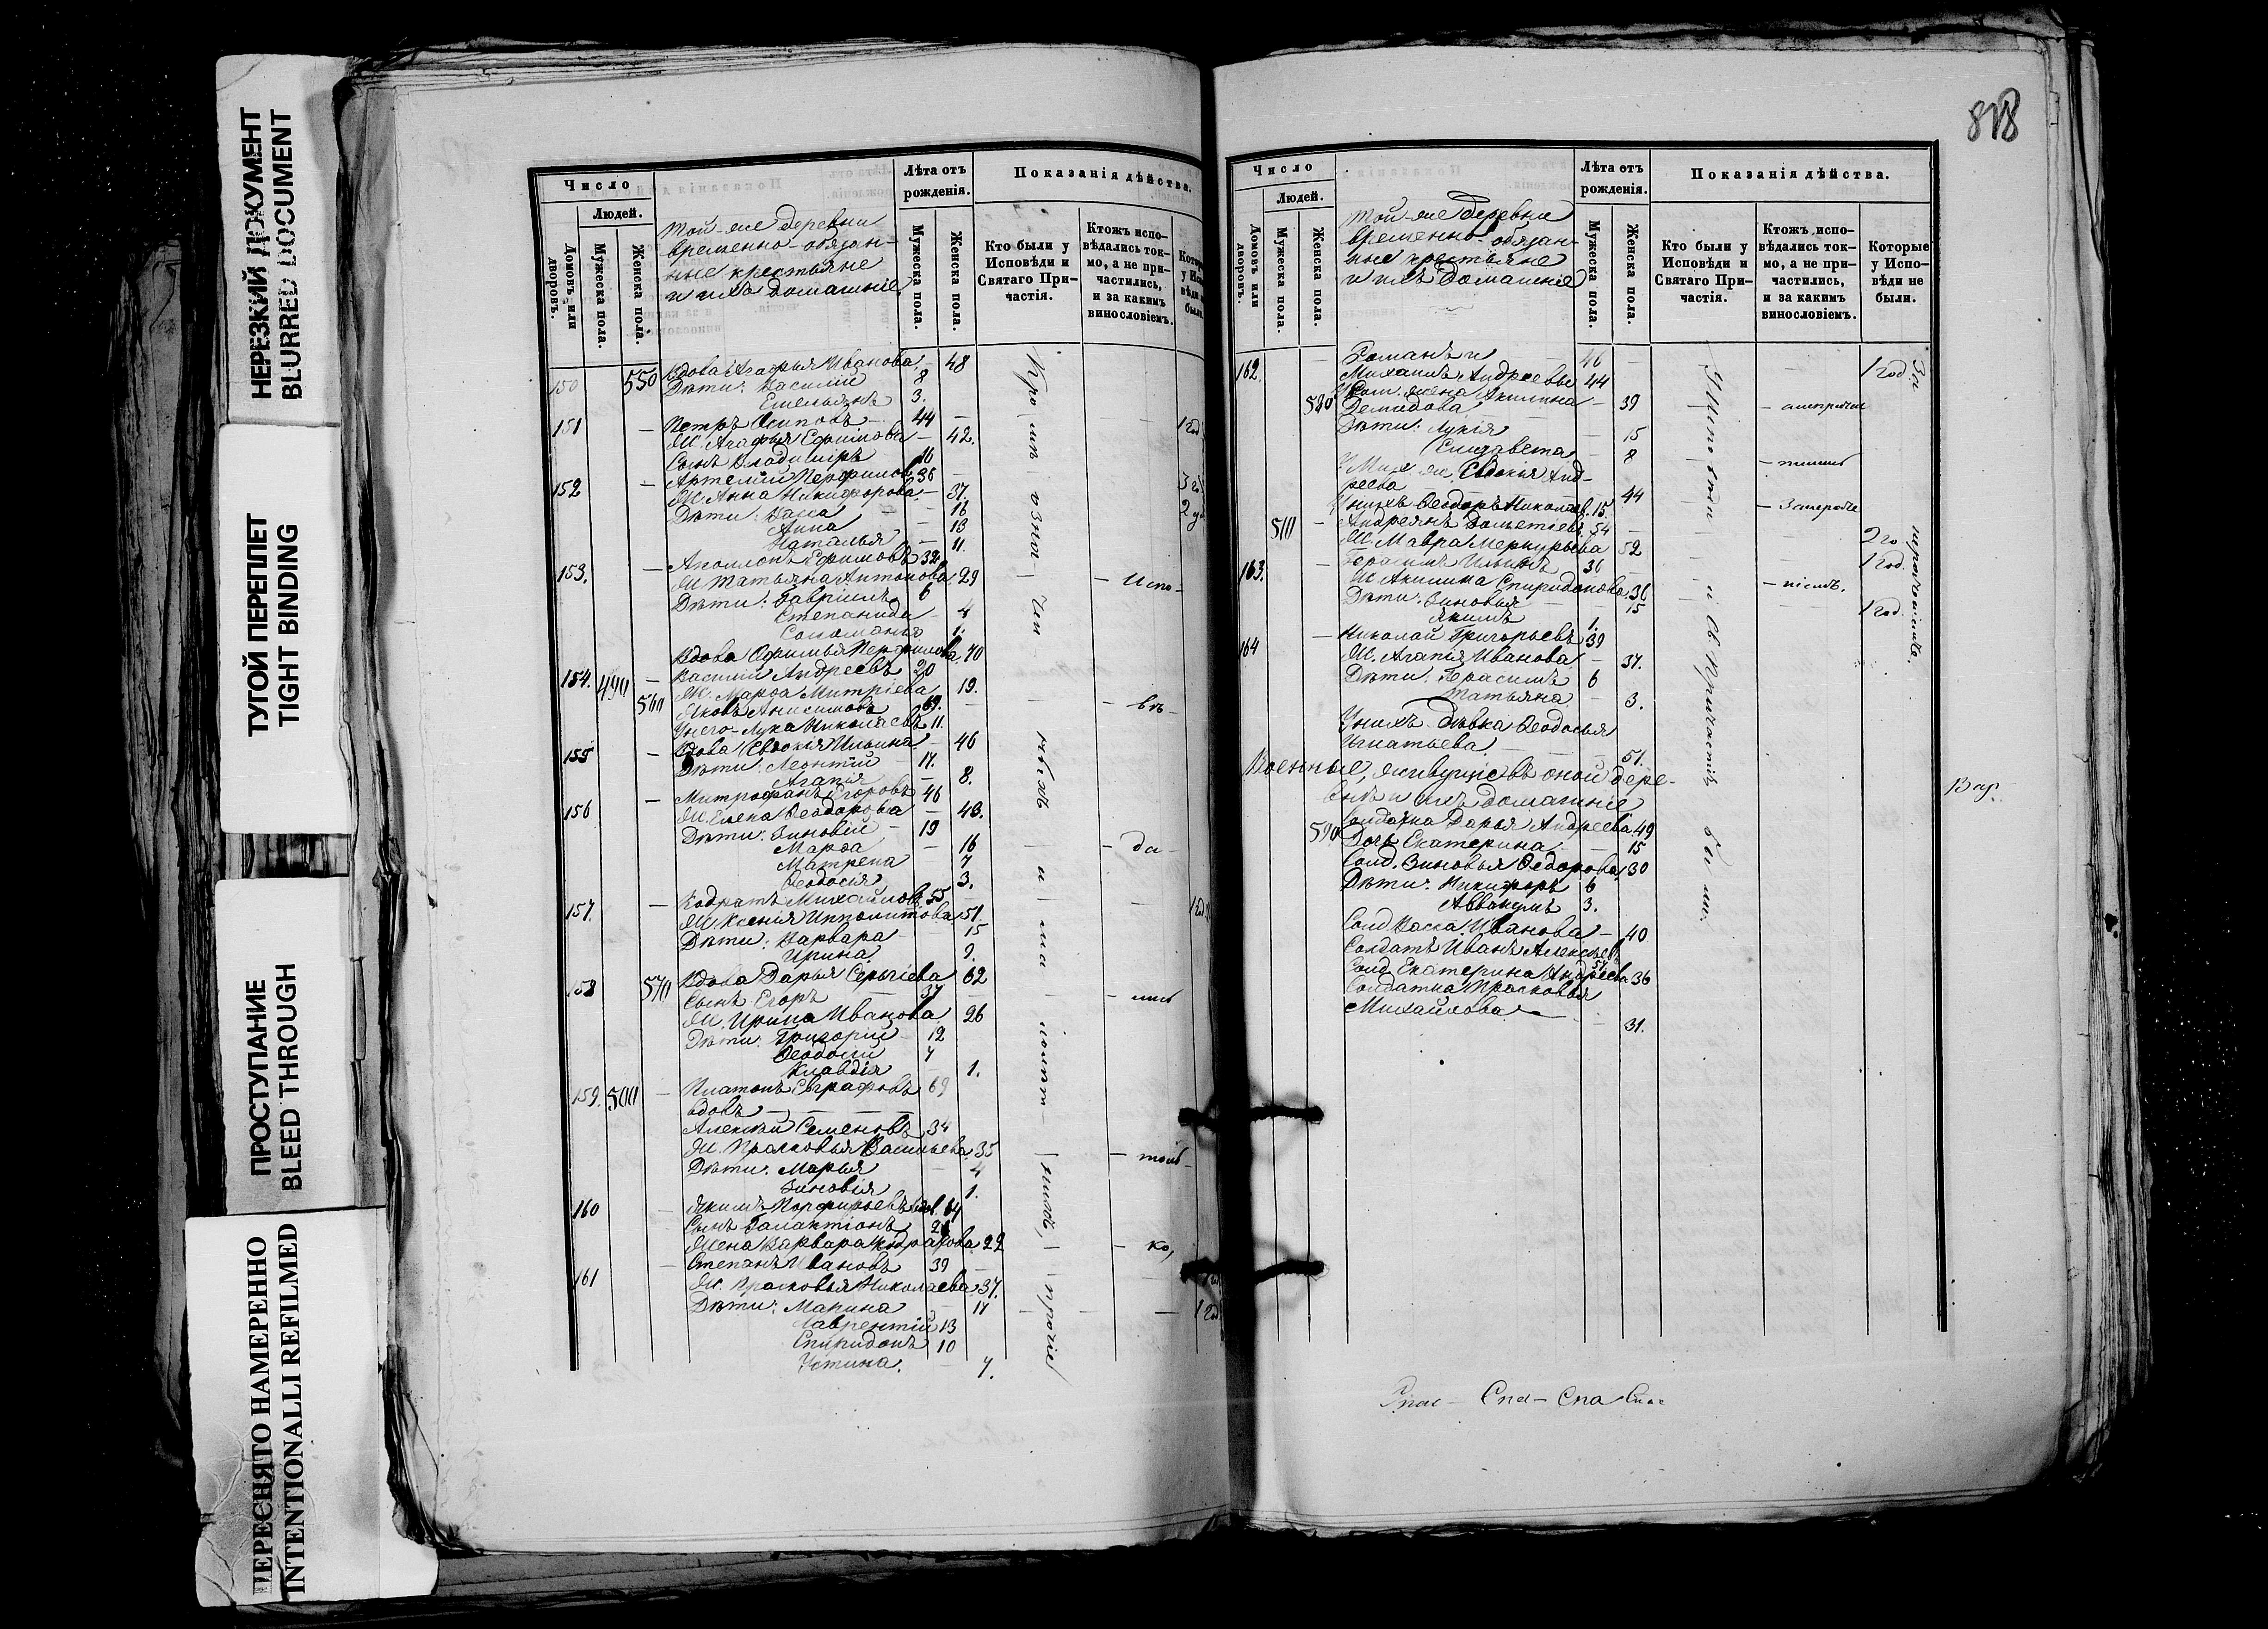 НЕРЕЗКИЙ ДОКУМЕНТ
BLURRED DOCUMENT
ТУГОЙ ПЕРЕПЛЕТ
TIGHT BINDING
ПРОСТУПАНИЕ
BLEED THROUGH
ПЕРЕСНЯТО НАМЕРЕННО
INTENTIONALLI REFILMED
Число
Людей.
Домовъ или дворовъ.
Мужеска пола.
Женска пола.
Той-же деревни
временно-обязан-
ные крестьяне
и ихъ домашніе
Лѣта отъ рожденія.
Мужеска пола.
Женска пола.
Показанія дѣйства.
Кто были у Исповѣди и Святаго Причастія.
Ктожъ исповѣдались токмо, а не причастились, и за какимъ винословіемъ.
150 550 Вдова Агафья Иванова 48
Дѣти: Василій 8
Емельянъ 3.
151 Петръ Осиповъ 44
Ж. Агафья Ефимова 42.
Сынъ Владиміръ 16
152 Артемій Перфилов 38
Ж. Анна Никифорова 37.
Дѣти: Васса 16
Анна 13
Наталья 11.
153. Аполлонъ Ефимовъ 32
Ж. Татьяна Антонова 29
Дѣти: Гавріилъ 6
Степанида 4
Соломанья 1.
Вдова Офимья Перфилова 70
154. 490 Василій Андреевъ 20
Ж. Марѳа Митріева 19.
560 Яковъ Анисимовъ 69.
У него Лука Николаевъ 11.
155 Вдова Евдокія Ильина 46
Дѣти: Леонтій 17.
Агапія 8.
156 Митрофанъ Егоровъ 46
Ж. Елена Ѳеодорова 43.
Дѣти: Зиновій 19
Марѳа 16
Матрена 7
Ѳеодосія 3.
157. Кодратъ Михайлов. 55
Ж. Ксенія Ипполитова 51.
Дѣти: Варвара 15
Ирина 9.
158 570 Вдова Дарья Сергіева 62
Сынъ Егоръ 37
Ж. Ирина Иванова 26
Дѣти: Григорій 12
Ѳеодосій 7
Клавдія 1.
159. 500 Платонъ Евграфовъ 69
вдовъ
Алексѣй Семеновъ 34
Ж. Прасковья Васильева 35
Дѣти: Марья 4
Зиновія 1.
160 Якимъ Порфирьевъ вдов. 64
Сынъ Галактіонъ 26
Жена Варвара Кодратова 22
161 Степанъ Ивановъ 39
Ж. Прасковья Николаева 37.
Дѣти: Марина 17
Лаврентій 13
Спиридонъ 10
Устина. 7.
Испо-
вѣ-
да-
лись
толь-
ко,
и прочіе
818
Число
Людей.
Домовъ или дворовъ.
Мужеска пола.
Женска пола.
Той-же деревни
временно-обязан-
ные крестьяне
и ихъ домашніе
Лѣта отъ рожденія.
Мужеска пола.
Женска пола.
Показанія дѣйства.
Кто были у Исповѣди и Святаго Причастія.
Ктожъ исповѣдались токмо, а не причастились, и за какимъ винословіемъ.
Которые у Исповѣди не были.
162. Романъ и 46
Михаилъ Андреевы 44 1 год.
580 У Ром. жена Акилина
Демидова 39
Дѣти: Лукія 15
Елизавета 8
У Мих. ж. Евдокія Анд-
реева 44
У нихъ Ѳеодоръ Николаев. 15.
510 Андреянъ 54
Ж. Мавра Меркурьева 52
163. Герасимъ Ильинъ 36 1 год.
Ж. Акилина Спиридонова 36
Дѣти: Зиновья 15
Якимъ 1.
164 Николай Григорьевъ 39
Ж. Агапія Иванова 37.
Дѣти: Герасимъ 6
Татьяна 3.
У нихъ дѣвка Ѳеодосья
Игнатьева 51.
Военные, живущіе въ оной дере-
внѣ и ихъ домашніе
Солдатка Дарья Андреева 49
590 Дочь Екатерина 15
Солд. Зиновья Ѳедорова 30
Дѣти: Никифоръ 6
Аввакумъ 3.
Солд. Васса Иванова 40
Солдатъ Иванъ Алексѣев.
Солд. Екатерина Андреева 36
Солдатка Прасковья
Михайлова 31.
У Исповѣди и Св. Причастія были.
За нерачен
Спас - Спа - Спа Спас